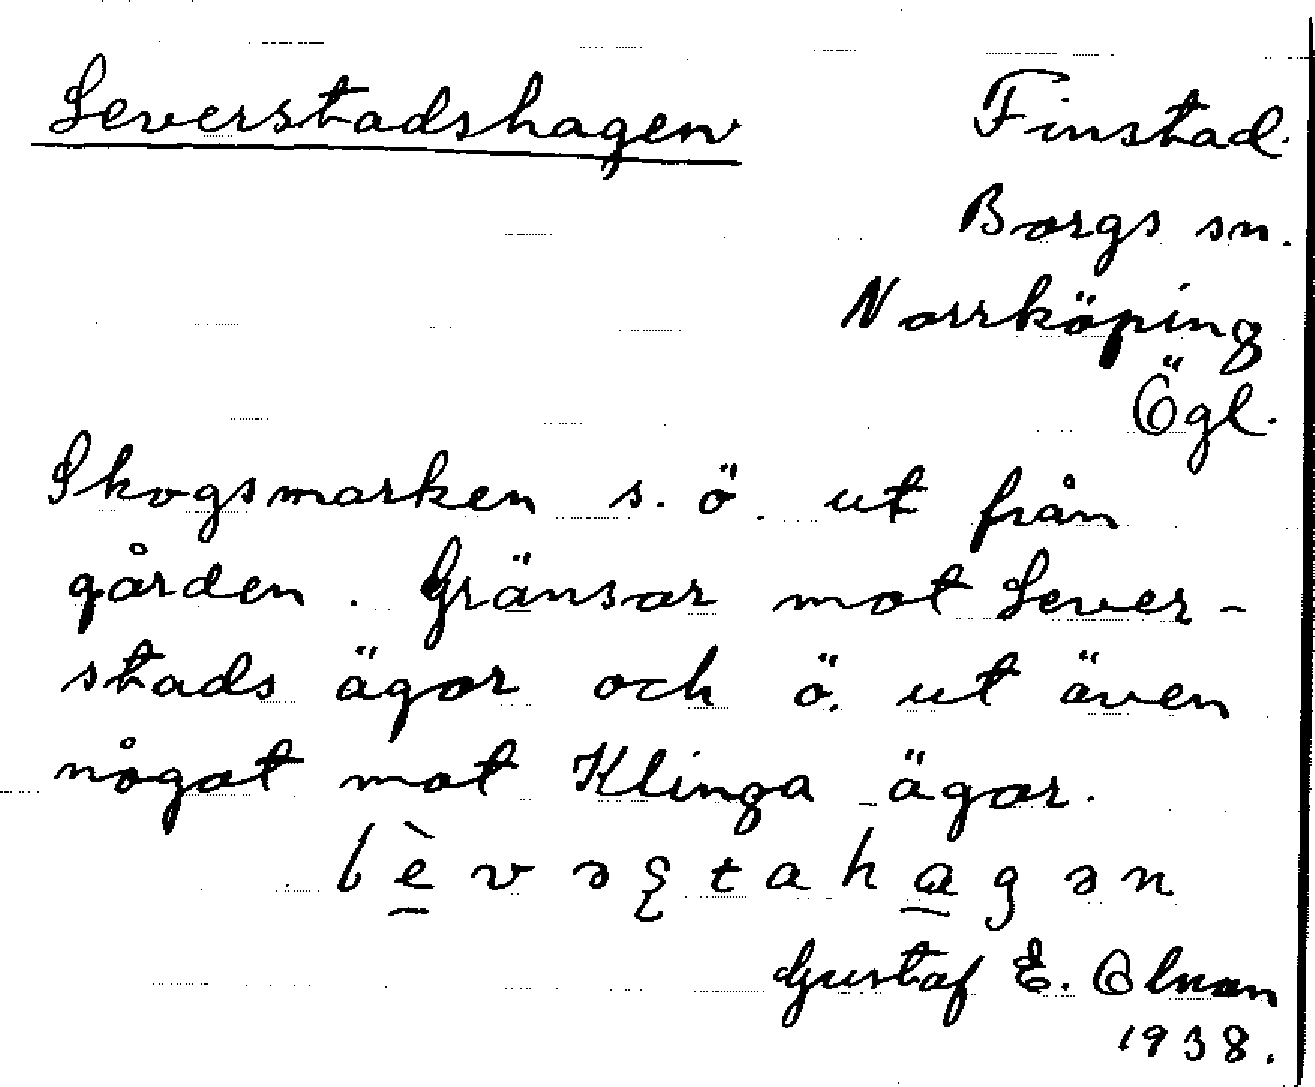 Leverstadshagen
Finstad.
Borgs sn.
Norrköping
Ögl.
Skogsmarken s. ö. ut från
gården. Gränsar mot Lever-
stads ägor och ö. ut även
något mot Klinga ägor.
Gustaf E. Olnan
1938.